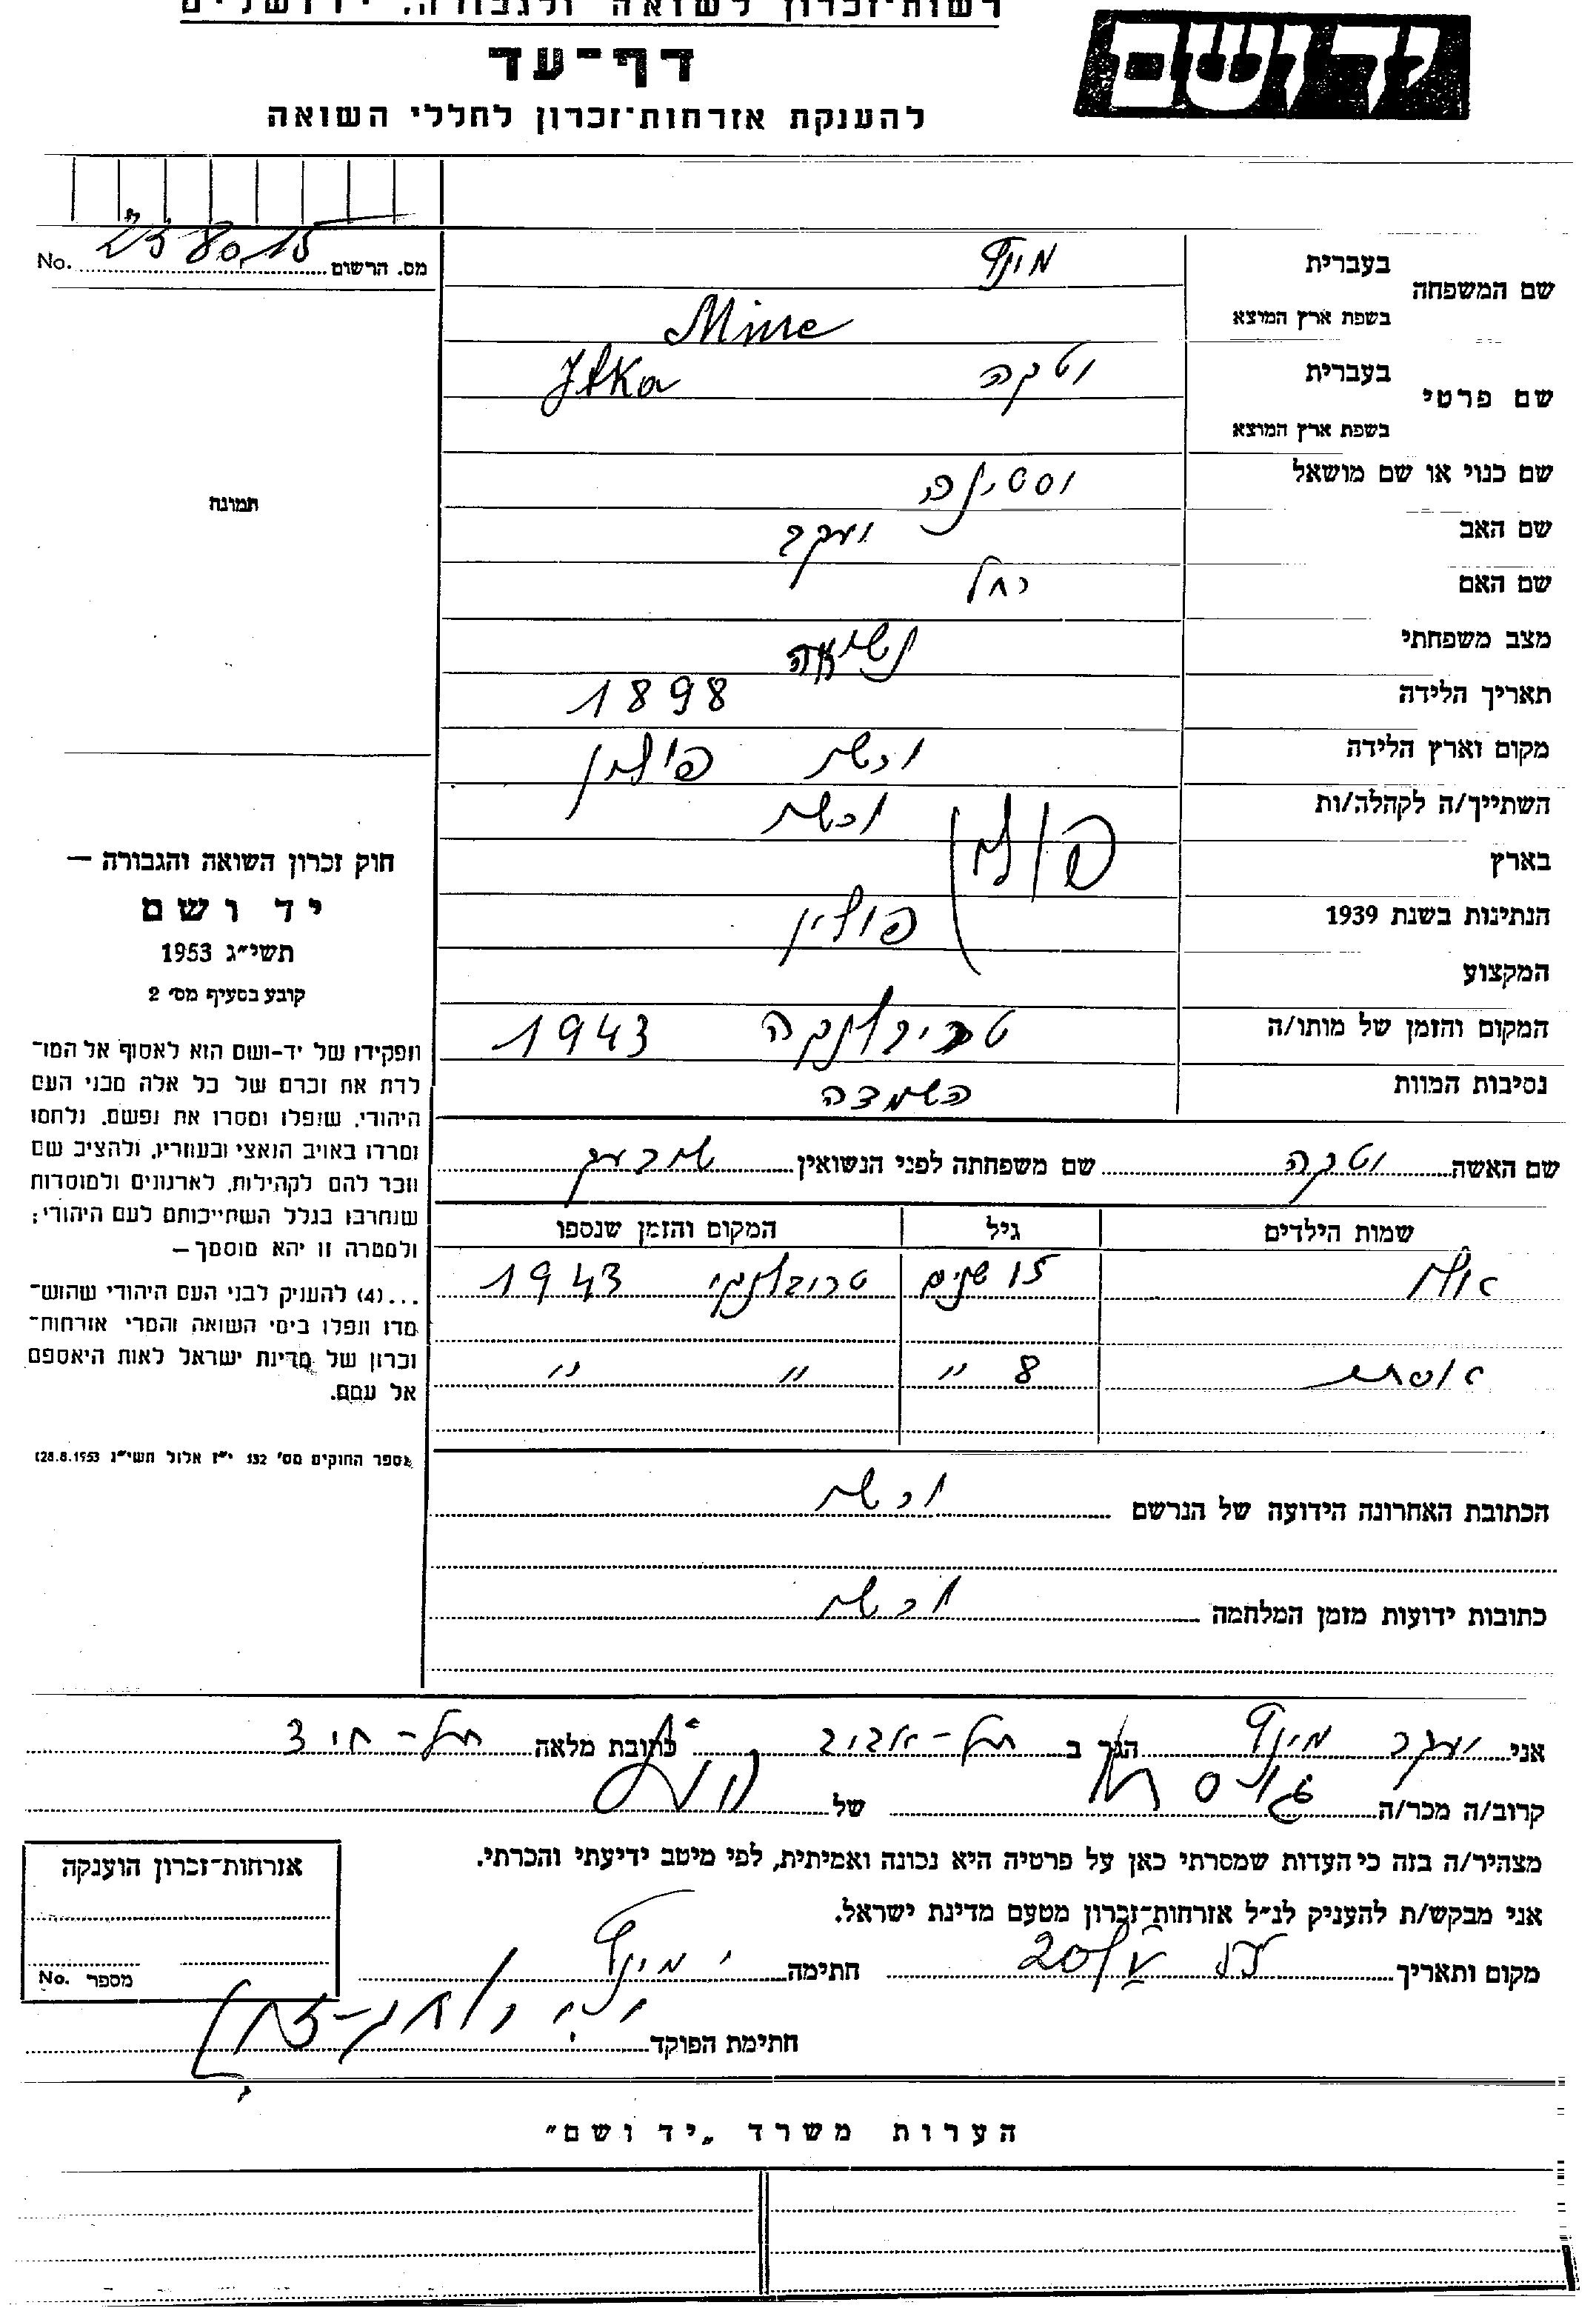 רשות־זכרון לשואה ולגבורה, ירושלים
יד ושם
דף־עד
להענקת אזרחות־זכרון לחללי השואה
מס. הרשום No.
שם המשפחה
בעברית
בשפת ארץ המוצא
שם פרטי
בעברית יטקה Jtka
בשפת ארץ המוצא
שם כנוי או שם מושאל
שם האב יעקב
שם האם רחל
מצב משפחתי נשואה
תאריך הלידה 1898
מקום וארץ הלידה ורשה פולין
השתייך/ה לקהלה/ות ורשה
בארץ פולין
הנתינות בשנת 1939 פולין
המקצוע
המקום והזמן של מותו/ה טרבלינקה 1943
נסיבות המוות השמדה
שם האשה יטקה שם משפחתה לפני הנשואין
שמות הילדים גיל המקום והזמן שנספו
15 שנים טרבלינקי 1943
אסתר 8 " " "
הכתובת האחרונה הידועה של הנרשם ורשה
כתובות ידועות מזמן המלחמה ורשה
תמונה
חוק זכרון השואה והגבורה —
יד ושם
תשי״ג 1953
קובע בסעיף מס׳ 2
תפקידו של יד-ושם הוא לאסוף אל המו־
לדת את זכרם של כל אלה מבני העם
היהודי, שנפלו ומסרו את נפשם, נלחמו
ומרדו באויב הנאצי ובעוזריו, ולהציב שם
וזכר להם לקהילות, לארגונים ולמוסדות
שנחרבו בגלל השתייכותם לעם היהודי;
ולמטרה זו יהא מוסמך—
...(4) להעניק לבני העם היהודי שהוש־
מדו ונפלו בימי השואה והמרי אזרחות־
זכרון של מדינת ישראל לאות היאספם
אל עמם.
(ספר החוקים מס׳ 132 י״ז אלול תשי״ג 28.8.1953)
אני יעקב הגר ב תל-אביב כתובת מלאה תל-חי 3
קרוב/ה מכר/ה של
מצהיר/ה בזה כי העדות שמסרתי כאן על פרטיה היא נכונה ואמיתית, לפי מיטב ידיעתי והכרתי.
אני מבקש/ת להעניק לנ״ל אזרחות־זכרון מטעם מדינת ישראל.
מקום ותאריך חתימה
חתימת הפוקד
אזרחות־זכרון הוענקה
מספר No.
הערות משרד „יד ושם"